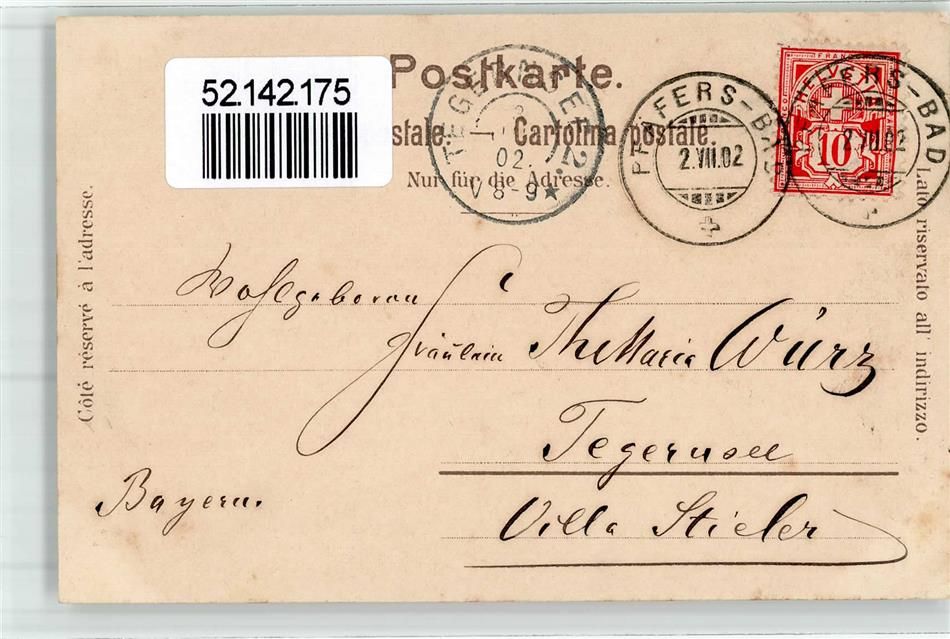 52.142.175
Postkarte.
stale. — Cartolina postale.
Nur für die Adresse.
TEGERNSEE 2.
3
02.
V 8-9 ★
PFÄFERS-BAD
2.VII.02
FRANCO
HELVETIA
10
PFÄFERS-BAD
2.VII.02
Côté réservé à l'adresse.
Lato riservato all' indirizzo.
Wohlgeboren
Fräulein The Maria Würz
Tegernsee
Bayern.
Villa Stieler